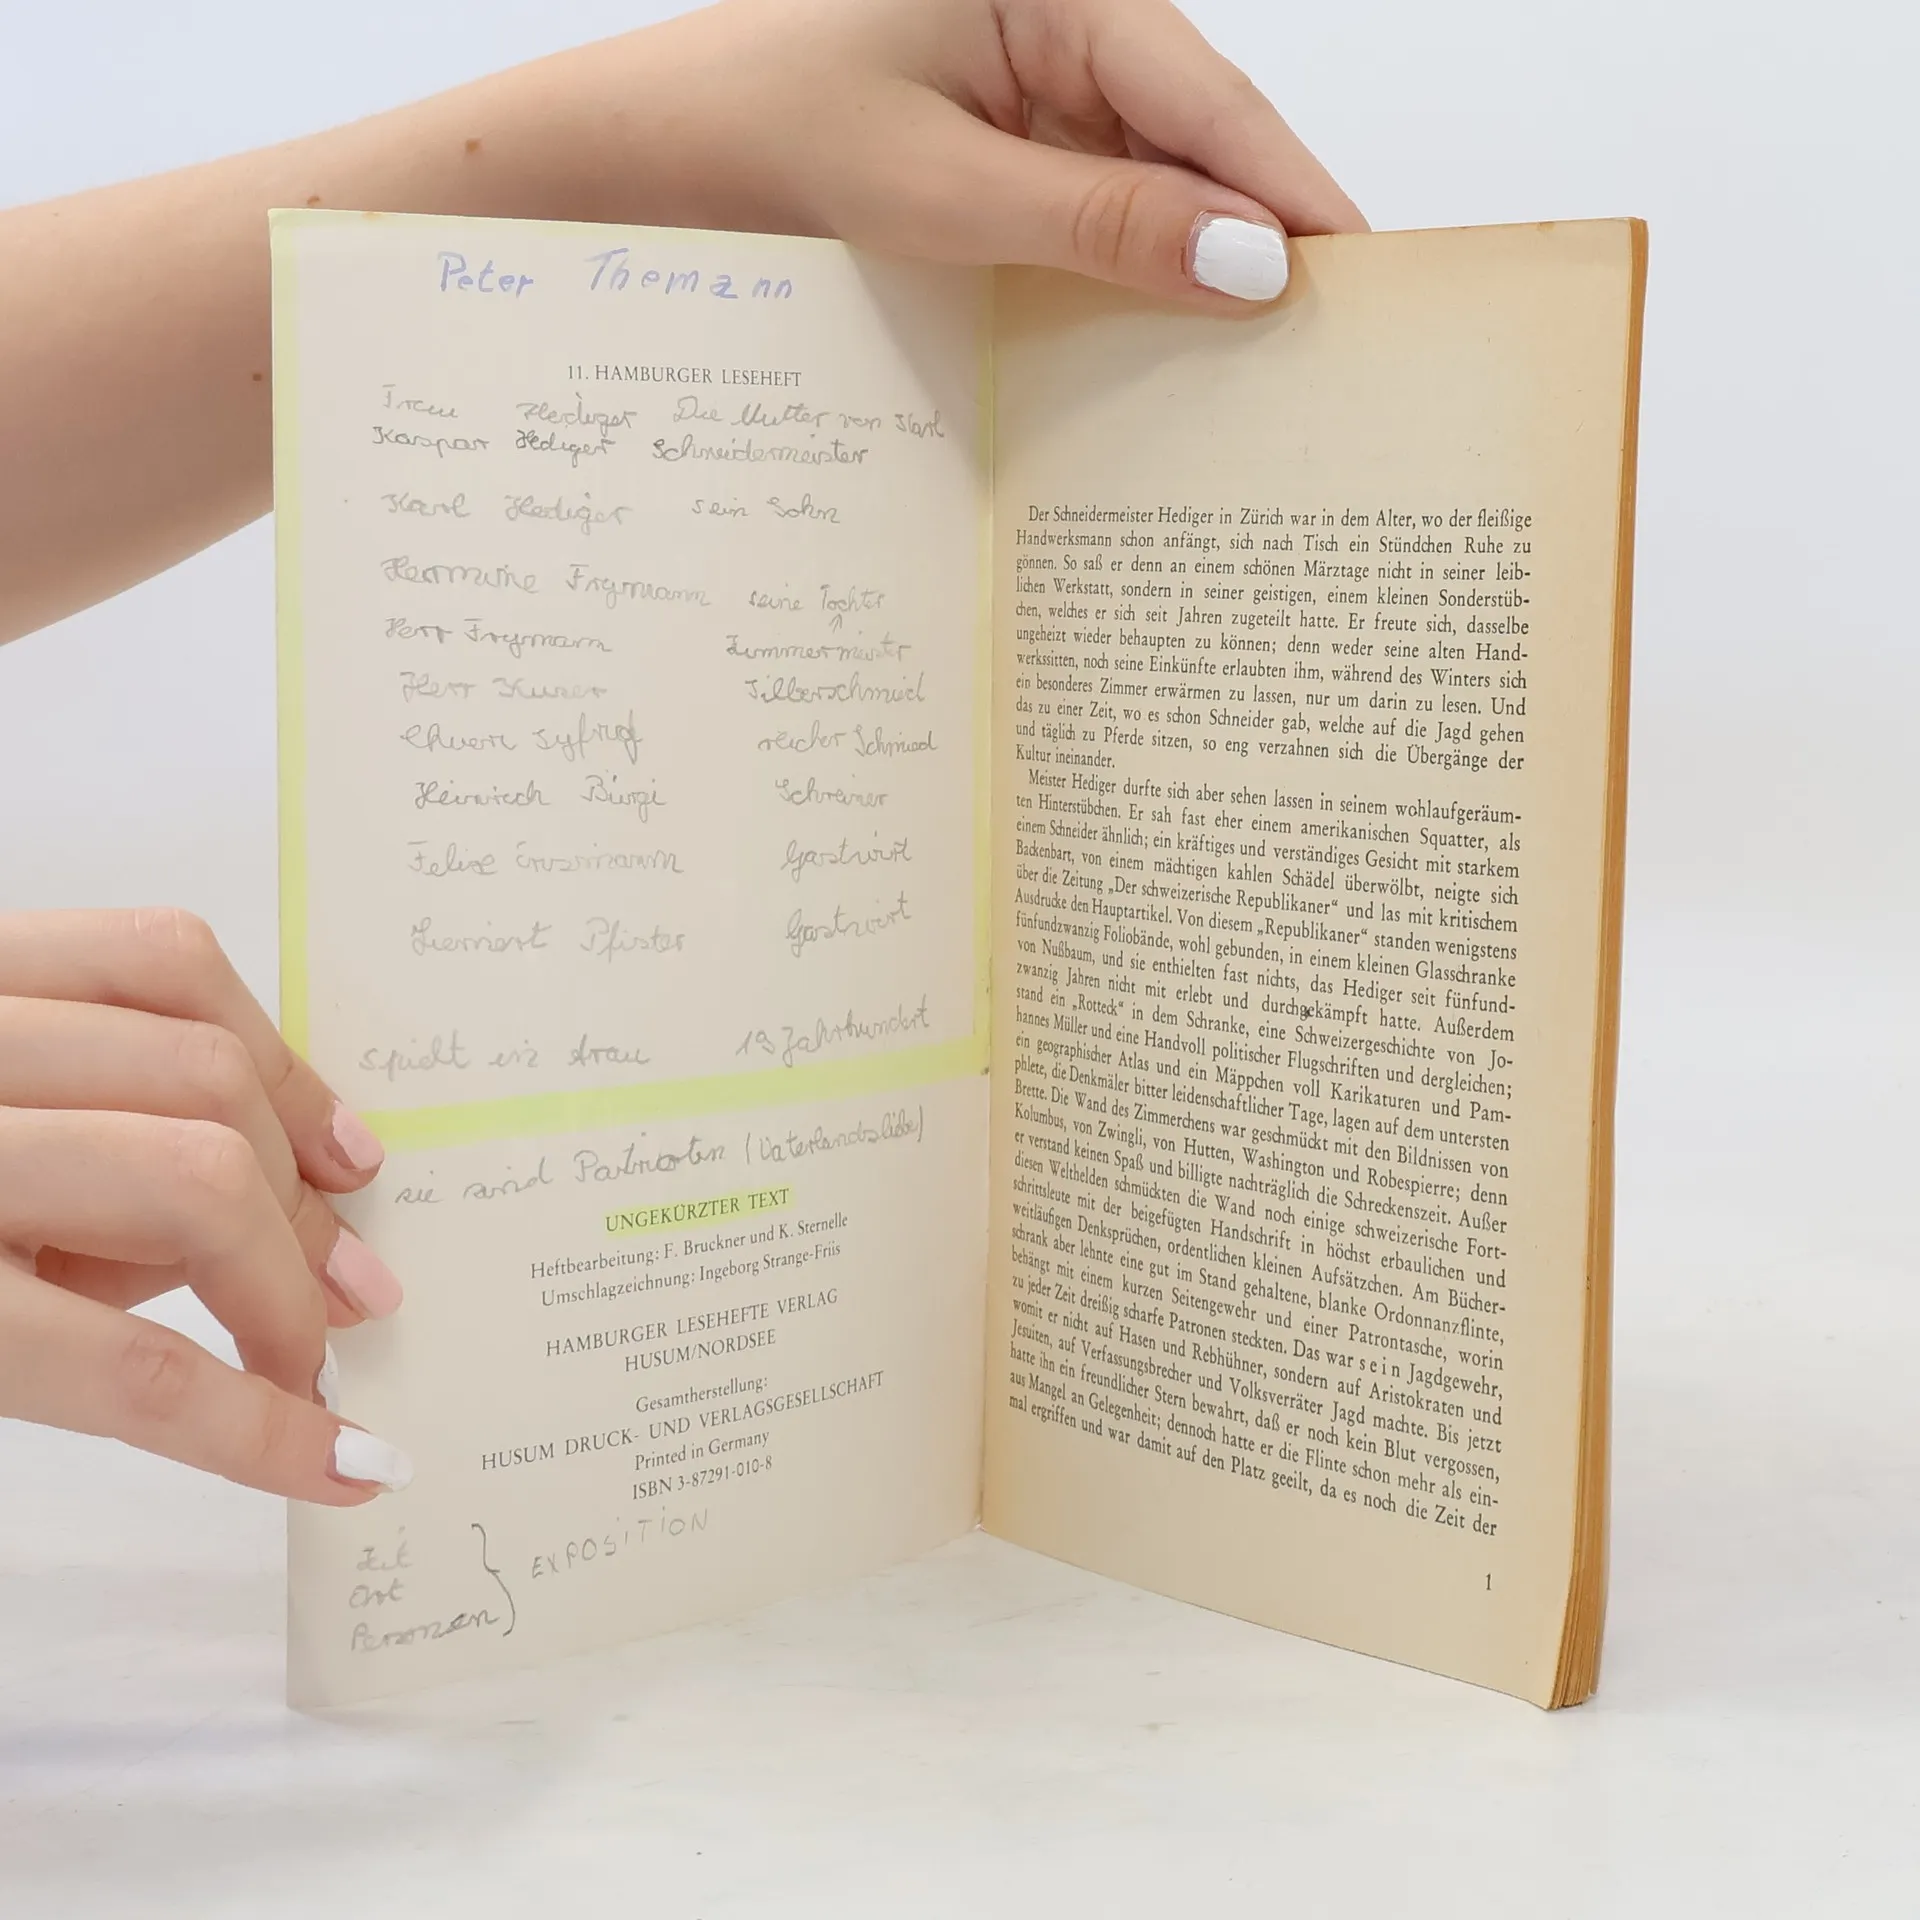 Peter Themann
11. HAMBURGER LESEHEFT
Frau Hediger Die Mutter von Karl
Kaspar Hediger Schneidermeister
Karl Hediger sein Sohn
Hermine Frymann seine Tochter
Herr Frymann Zimmermeister
Herr Kuser Silberschmied
Syfrig reicher Schmied
Heinrich Bürgi Schreiner
Felix Erusmann Gastwirt
Pfister Gastwirt
spielt in Arau 19 Jahrhundert
sie sind Patrioten (Vaterlandsliebe)
UNGEKÜRZTER TEXT
Heftbearbeitung: F. Bruckner und K. Sternelle
Umschlagzeichnung: Ingeborg Strange-Friis
HAMBURGER LESEHEFTE VERLAG
HUSUM/NORDSEE
Gesamtherstellung:
HUSUM DRUCK- UND VERLAGSGESELLSCHAFT
Printed in Germany
ISBN 3-87291-010-8
Zeit
Ort
Personen
} EXPOSITION
Der Schneidermeister Hediger in Zürich war in dem Alter, wo der fleißige
Handwerksmann schon anfängt, sich nach Tisch ein Stündchen Ruhe zu
gönnen. So saß er denn an einem schönen Märztage nicht in seiner leib-
lichen Werkstatt, sondern in seiner geistigen, einem kleinen Sonderstüb-
chen, welches er sich seit Jahren zugeteilt hatte. Er freute sich, dasselbe
ungeheizt wieder behaupten zu können; denn weder seine alten Hand-
werkssitten, noch seine Einkünfte erlaubten ihm, während des Winters sich
ein besonderes Zimmer erwärmen zu lassen, nur um darin zu lesen. Und
das zu einer Zeit, wo es schon Schneider gab, welche auf die Jagd gehen
und täglich zu Pferde sitzen, so eng verzahnen sich die Übergänge der
Kultur ineinander.
Meister Hediger durfte sich aber sehen lassen in seinem wohlaufgeräum-
ten Hinterstübchen. Er sah fast eher einem amerikanischen Squatter, als
einem Schneider ähnlich; ein kräftiges und verständiges Gesicht mit starkem
Backenbart, von einem mächtigen kahlen Schädel überwölbt, neigte sich
über die Zeitung „Der schweizerische Republikaner“ und las mit kritischem
Ausdrucke den Hauptartikel. Von diesem „Republikaner“ standen wenigstens
fünfundzwanzig Foliobände, wohl gebunden, in einem kleinen Glasschranke
von Nußbaum, und sie enthielten fast nichts, das Hediger seit fünfund-
zwanzig Jahren nicht mit erlebt und durchgekämpft hatte. Außerdem
stand ein „Rotteck“ in dem Schranke, eine Schweizergeschichte von Jo-
hannes Müller und eine Handvoll politischer Flugschriften und dergleichen;
ein geographischer Atlas und ein Mäppchen voll Karikaturen und Pam-
phlete, die Denkmäler bitter leidenschaftlicher Tage, lagen auf dem untersten
Brette. Die Wand des Zimmerchens war geschmückt mit den Bildnissen von
Kolumbus, von Zwingli, von Hutten, Washington und Robespierre; denn
er verstand keinen Spaß und billigte nachträglich die Schreckenszeit. Außer
diesen Welthelden schmückten die Wand noch einige schweizerische Fort-
schrittsleute mit der beigefügten Handschrift in höchst erbaulichen und
weitläufigen Denksprüchen, ordentlichen kleinen Aufsätzchen. Am Bücher-
schrank aber lehnte eine gut im Stand gehaltene, blanke Ordonnanzflinte,
behängt mit einem kurzen Seitengewehr und einer Patrontasche, worin
zu jeder Zeit dreißig scharfe Patronen steckten. Das war sein Jagdgewehr,
womit er nicht auf Hasen und Rebhühner, sondern auf Aristokraten und
Jesuiten, auf Verfassungsbrecher und Volksverräter Jagd machte. Bis jetzt
hatte ihn ein freundlicher Stern bewahrt, daß er noch kein Blut vergossen,
aus Mangel an Gelegenheit; dennoch hatte er die Flinte schon mehr als ein-
mal ergriffen und war damit auf den Platz geeilt, da es noch die Zeit der
1